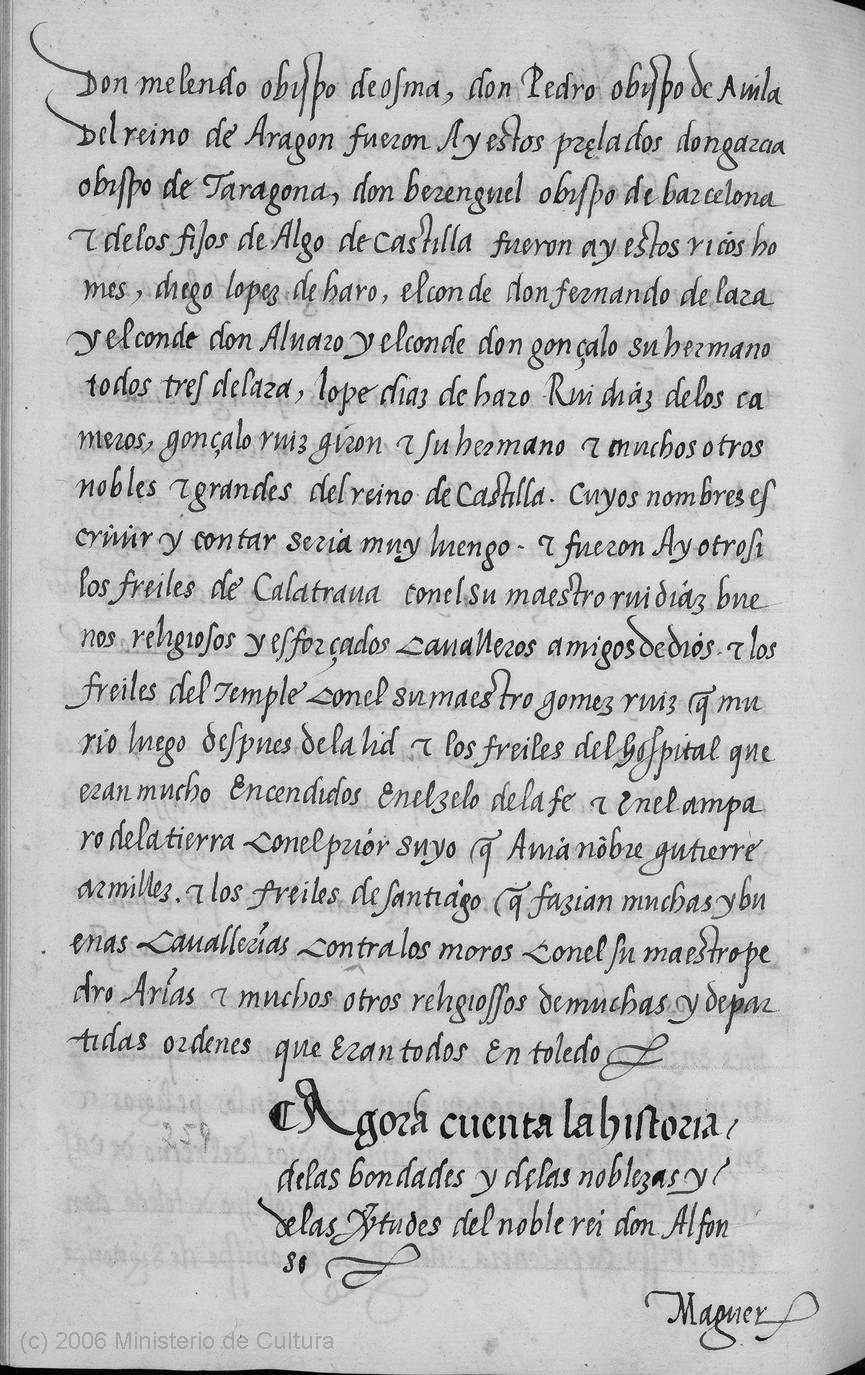 Don melendo obispo de osma, don Pedro obispo de Auila
Del reino de Aragon fueron Ay estos prelados don garcia
obispo de Taragona, don berenguel obispo de barcelona
⁊ delos fijos de Algo de Castilla fueron ay estos ricos ho
mes, diego lopez de haro, el conde don fernando de lara
y el conde don Aluaro y el conde don gonçalo su hermano
todos tres de lara, lope diaz de haro Rui diáz delos ca
meros, gonçalo ruiz giron ⁊ su hermano ⁊ muchos otros
nobles ⁊ grandes del reino de Castilla. Cuyos nombres es
criuir y contar seria muy luengo. ⁊ fueron Ay otrosi
los freiles de Calatraua con el su maestro rui diáz bue
nos religiosos y esforçados Caualleros amigos de diós. ⁊ los
freiles del Temple Con el su maestro gomez ruiz q̃ mu
rio luego despues de la lid ⁊ los freiles del hospital que
eran mucho Encendidos En el zelo de la fe ⁊ En el ampa
ro de la tierra Con el priór suyo q̃ Auiá nõbre gutierre
armillez. ⁊ los freiles de santiágo q̃ fazian muchas y bu
enas Cauallerías Contra los moros Con el su maestro pe
dro Arías ⁊ muchos otros religiossos de muchas y depar
tidas ordenes que Eran todos En toledo
Agora cuenta la historia
259
de las bondades y de las noblezas y
de las Vr̃tudes del noble rei don Alfon
so
Maguer
(c) 2006 Ministerio de Cultura